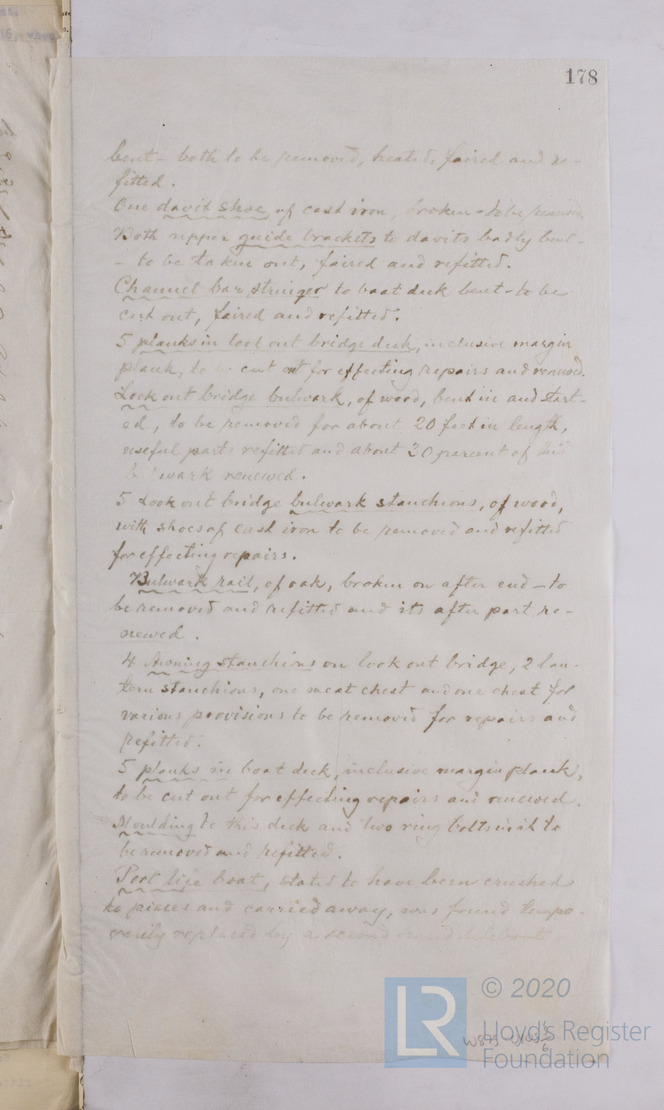 178
bent - both to be removed, heated, faired and re-
fitted.
One davit shoe, of cast iron, broken - to be renewed.
Both upper guide brackets to davits badly bent -
- to be taken out, faired and refitted.
Channel bar stringer to boat deck bent - to be
cut out, faired and refitted.
5 planks in look out bridge deck, inclusive margin
plank, to be cut out for effecting repairs and renewed.
Look out bridge bulwark, of wood, bent in and start-
ed, to be removed for about 20 feet in length,
useful parts refitted and about 30 percent of this
bulwark renewed.
5 Look out bridge bulwark stanchions, of wood,
with shoes of cast iron to be removed and refitted
for effecting repairs.
Bulwark rail, of oak, broken on after end - to
be removed and refitted and its after part re-
newed.
4 Awning stanchions on look out bridge, 2 lan-
tern stanchions, one meat chest and one chest for
various provisions to be removed for repairs and
refitted.
5 planks in boat deck, inclusive margin plank,
to be cut out for effecting repairs and renewed.
Moulding to this deck and two ring bolts in it to
be removed and refitted.
Port life boat, stated to have been crushed
to pieces and carried away, was found tempo-
rarily replaced by a second hand lifeboat
LR
© 2020
Lloyd's Register
Foundation
W895